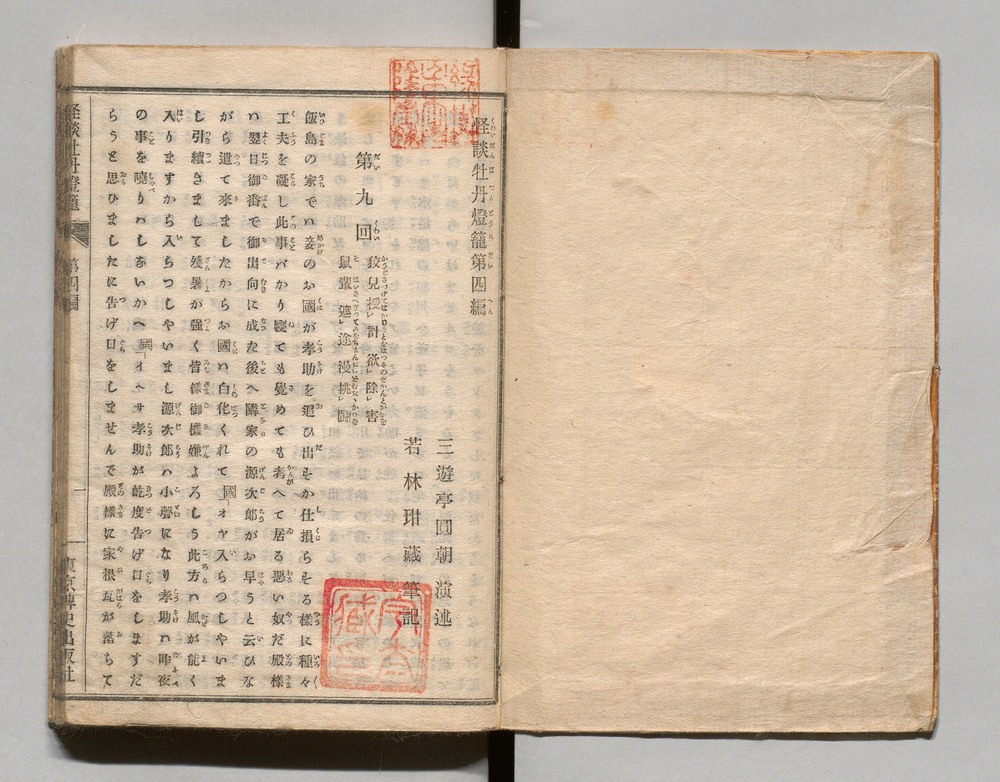 怪談牡丹燈籠第四編
三遊亭圓朝演述
若林玵藏筆記
第九回
狡兒授レ計欲レ除レ害
鼠輩遮レ途漫挑レ鬪
飯島の家でハ妾のお國が孝助を追ひ出すか仕損らする樣に種々
工夫を凝し此事バかり寢ても覺めても考へて居る惡い奴だ殿樣
ハ翌日御番で御出向に成た後へ隣家の源次郎がお早うと云ひな
がら遣て來ましたからお國ハ白化くれて國「オヤ入らつしやいま
し引續きまして殘暑が强く皆樣御機嫌よろしう此方ハ風が能く
入りますから入らつしやいまし源次郎ハ小聲になり孝助ハ昨夜
の事を喋りハしないかへ國「イヘサ孝助が屹度告げ口をしますだ
らうと思ひましたに告げ口をしませんで殿樣に家根瓦が落ちて
怪談牡丹燈籠 第四編 一 東京稗史出版社